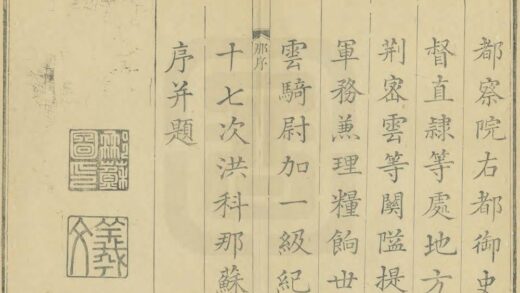 都察院右都御史
督直隸等處地方
荊宻雲等關隘提
軍務兼理糧餉世
雲騎尉加一級紀
那序
十七次洪科那蘇
序并題